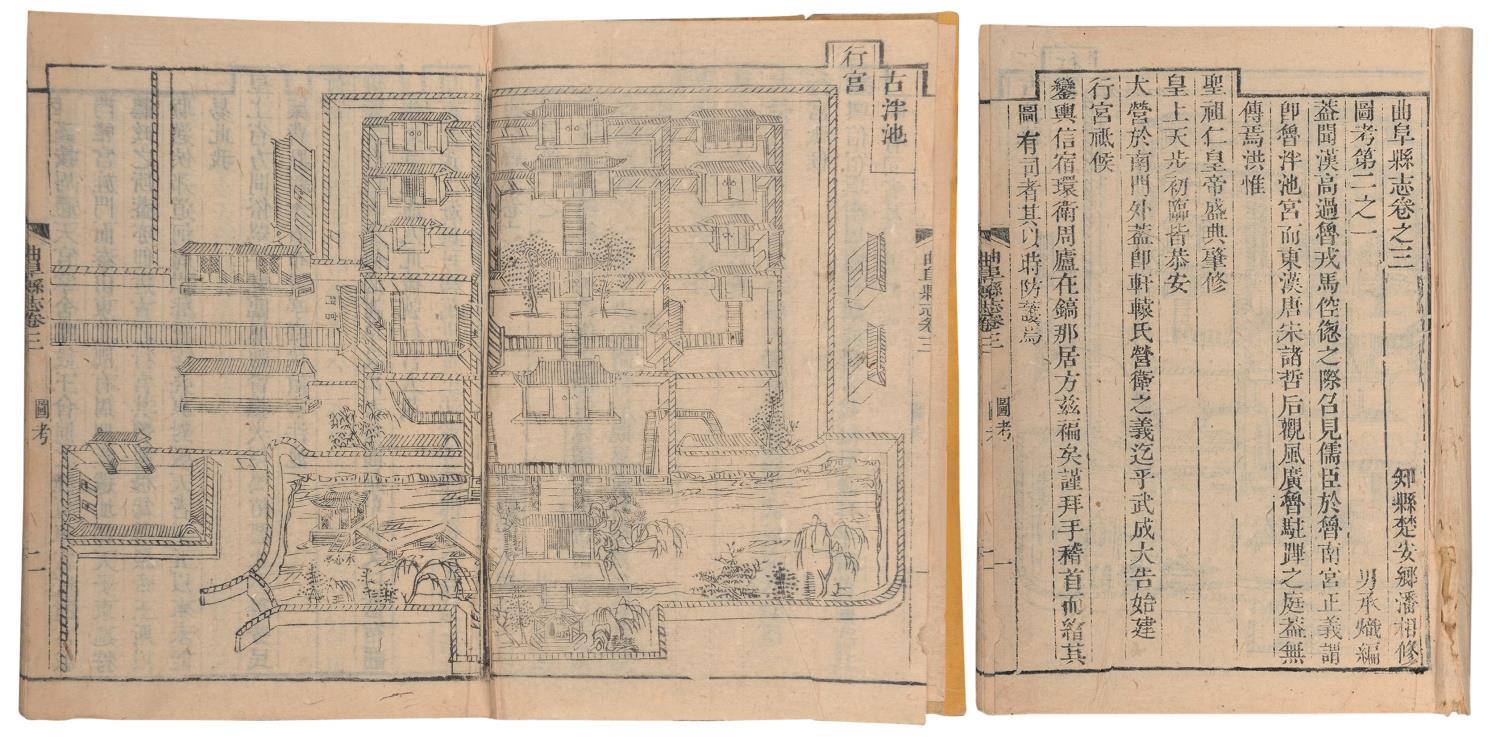 曲阜縣志卷之三
知縣楚安鄉潘相修
圖考第二之一
男承熾編
蓋聞漢高過魯戎馬倥傯之際召見儒臣於魯南宮正義謂
卽魯泮池宮而東漢唐宋諸哲后觀風廣魯駐蹕之庭蓋無
傳焉洪惟
聖祖仁皇帝盛典肇修
皇上天步初臨皆恭安
大營於南門外蓋卽軒轅氏營衛之義迄乎武成大告始建
行宮祗候
鑾輿信宿環衛周廬在鎬那居方茲福矣謹拜手稽首而繪其
圖有司者其以時防護焉
曲阜縣志卷三
圖考
一
古泮池
行宮
曲阜縣志卷三
曲阜縣志卷三
圖考
二